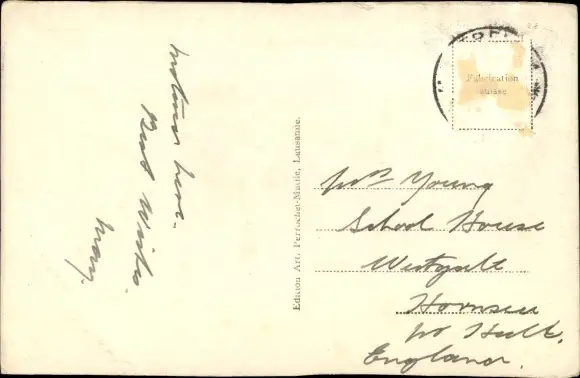 here.
Best Wishes
May.
Edition Art. Perrochet-Matile, Lausanne.
Fabrication
suisse
Mrs Young
School House
Westgate
Hornsea
nr Hull.
England.